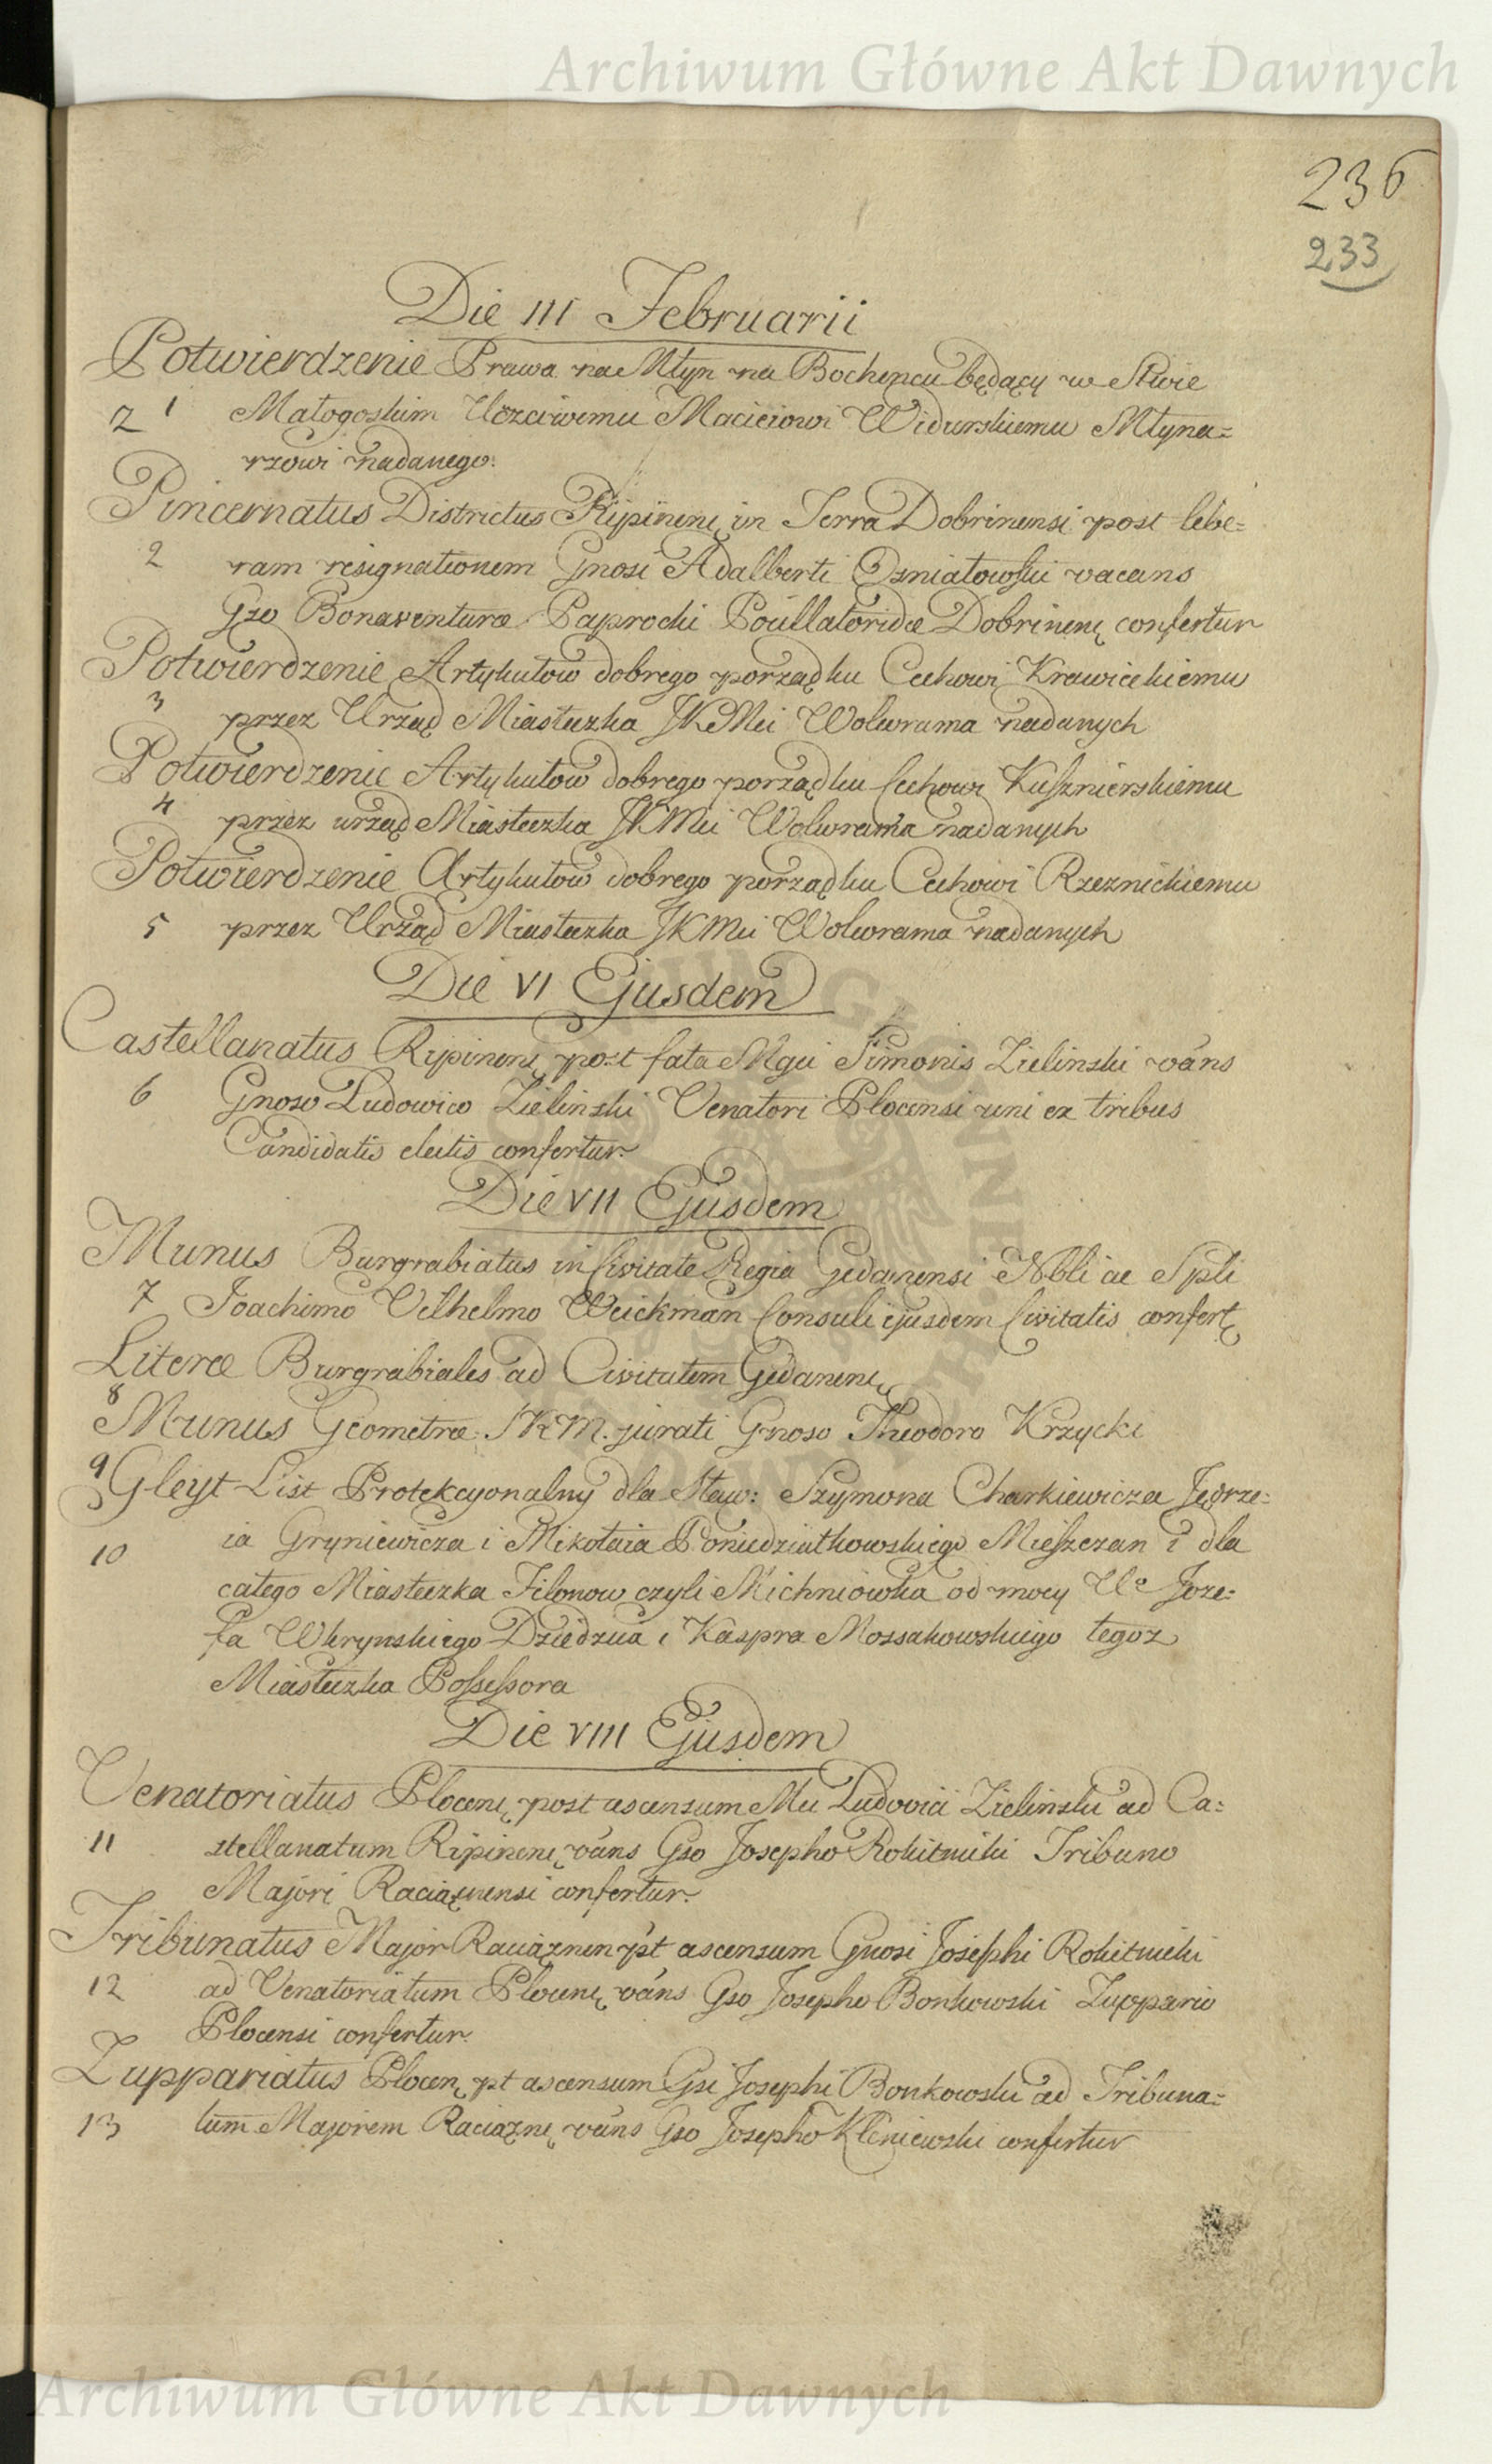 Archiwum Główne Akt Dawnych
236
233
Die III Februarii
Potwierdzenie Prawa na Młyn na Bocheńcu będący w Stwie
2 1 Małogoskim Uczciwemu Macieiowi Widurskiemu Młyna=
rzowi nadanego.
Pincernatus Districtus Ripinen, in Terra Dobrinensi post libe=
2 ram resignationem Gnosi Adalberti Ośniałowski vacans
Gso Bonaventuræ Paprocki Pocillatoridæ Dobrinen, confertur
Potwierdzenie Artykułow dobrego porządku Cechowi Krawieckiemu
3 przez Urząd Miasteczka JKMci Wolwrama nadanych
Potwierdzenie Artykułow dobrego porządku Cechowi Kuśznierskiemu
4 przez urząd Miasteczka JKMci Wolwrama nadanych
Potwierdzenie Artykułow dobrego porządku Cechowi Rzeznickiemu
5 przez Urząd Miasteczka JKMci Wolwrama nadanych
Die VI Ejusdem
Castellanatus Rypinen, post fata Mgci Simonis Zielinski vans
6 Gnoso Ludovico Zielinski Venatori Plocensi uni ex tribus
Candidatis electis confertur.
Die VII Ejusdem
Munus Burgrabiatus in Civitate Regia Gedanensi Nbli ac Spli
7 Joachimo Vilhelmo Weickman Consuli ejusdem Civitatis confert,
Literæ Burgrabiales ad Civitatem Gedanen,
8
Munus Geometræ SRM. jurati Gnoso Theodoro Krzycki
9
Gleyt List Protekcyonalny dla Sław: Szymona Charkiewicza Jędrze=
10 ia Gryniewicza i Mikołaia Poniedziałkowskiego Mieszczan i dla
całego Miasteczka Filonow czyli Michniowka od mocy Uo Joze=
fa Wkrynskiego Dziedzica i Kaspra Mossakowskiego tegoż
Miasteczka Possessora
Die VIII Ejusdem
Venatoriatus Plocen, post ascensum Mci Ludovici Zielinski ad Ca=
11 stellanatum Ripinen, vans Gso Josepho Rokitnicki Tribuno
Majori Raciążnensi confertur.
Tribunatus Major Raciąznen pst ascensum Gnosi Josephi Rokitnicki
12 ad Venatoriatum Plocen, vans Gso Josepho Bonkowski Zuppario
Plocensi confertur.
Zuppariatus Plocen, pt ascensum Gsi Josephi Bonkowski ad Tribuna=
13 tum Majorem Raciązn, vans Gso Josepho Kleniewski confertur
Archiwum Główne Akt Dawnych